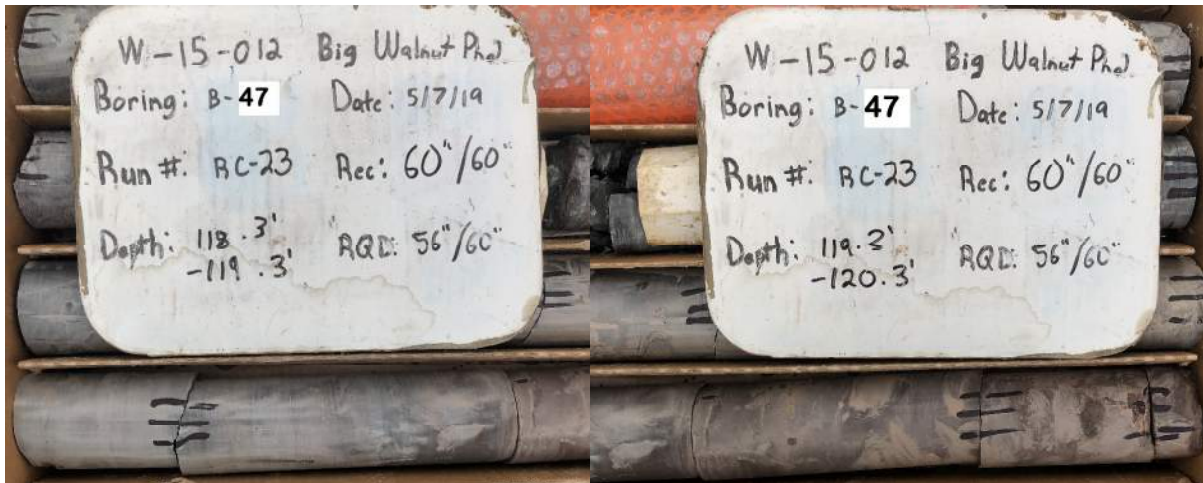 W-15-012 Big Walnut Ph2
Boring: B-47 Date: 5/7/19
Run #: RC-23 Rec: 60"/60"
Depth: 118.3' RQD: 56"/60"
-119.3'
W-15-012 Big Walnut Ph2
Boring: B-47 Date: 5/7/19
Run #: RC-23 Rec: 60"/60"
Depth: 119.3' RQD: 56"/60"
-120.3'